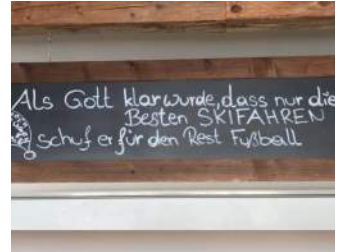 Als Gott klar wurde, dass nur die
Besten SKIFAHREN
schuf er für den Rest Fußball